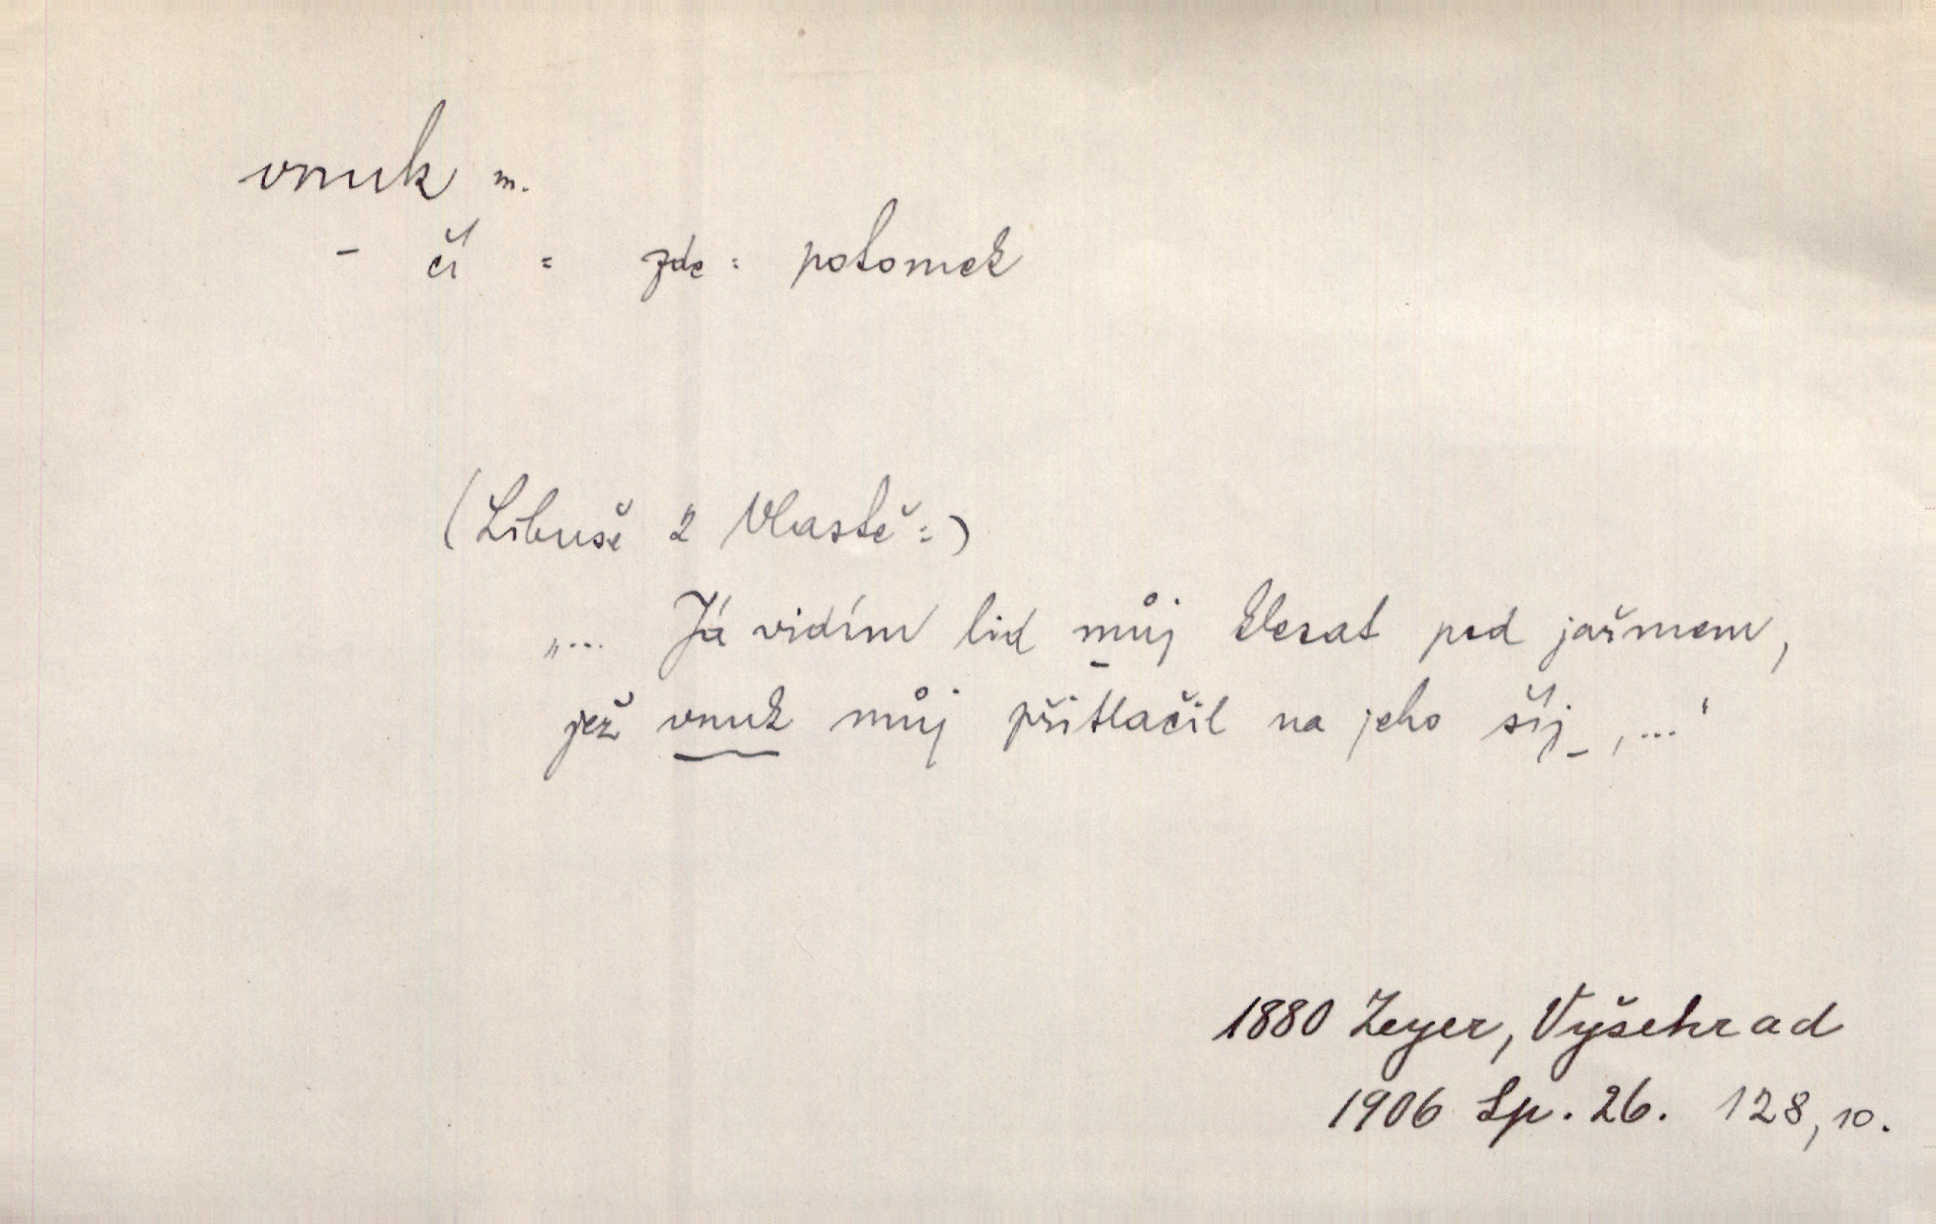 vnuk m.
- čí = zde: potomek
(Libuše k Vlastě:)
„... Já vidím lid můj klesat pod jařmem,
jež vnuk můj přitlačil na jeho šíj, ...“
1880 Zeyer, Vyšehrad
1906 Sp. 26. 128, 10.